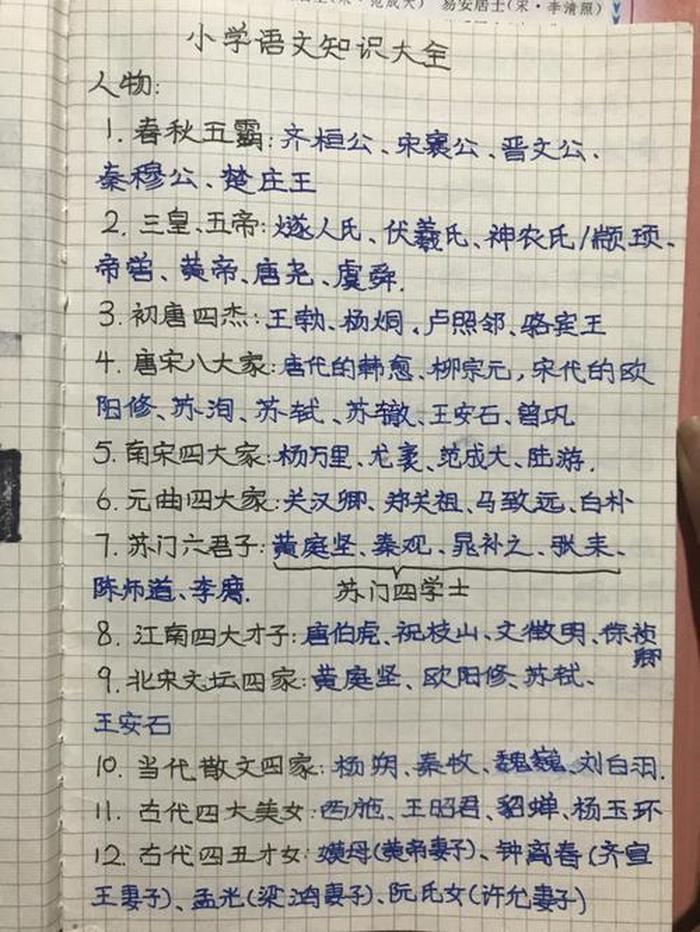 易安居士(宋·李清照)
小学语文知识大全
人物:
1. 春秋五霸:齐桓公、宋襄公、晋文公、
秦穆公、楚庄王
2. 三皇、五帝:燧人氏、伏羲氏、神农氏/颛顼、
帝喾、黄帝、唐尧、虞舜.
3. 初唐四杰:王勃、杨炯、卢照邻、骆宾王
4. 唐宋八大家:唐代的韩愈、柳宗元,宋代的欧
阳修、苏洵、苏轼、苏辙、王安石、曾巩
5. 南宋四大家:杨万里、尤袤、范成大、陆游.
6. 元曲四大家:关汉卿、郑关祖、马致远、白朴
7. 苏门六君子:黄庭坚、秦观、晁补之、张耒、
陈师道、李廌.
苏门四学士
8. 江南四大才子:唐伯虎、祝枝山、文徵明、徐祯
卿
9. 北宋文坛四家:黄庭坚、欧阳修、苏轼、
王安石
10. 当代散文四家:杨朔、秦牧、魏巍、刘白羽.
11. 古代四大美女:西施、王昭君、貂蝉、杨玉环
12. 古代四丑才女:嫫母(黄帝妻子)、钟离春(齐宣
王妻子)、孟光(梁鸿妻子)、阮氏女(许允妻子)